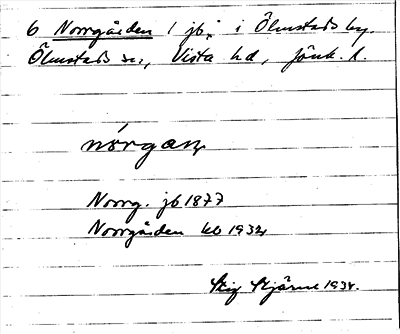 6 Norrgården 1 jb. i Ölmstads by.
Ölmstads sn, Vista hd, Jönk. l.
Norrg. jb 1877
Norrgården kb 1932
Stig Stjärne 1934.